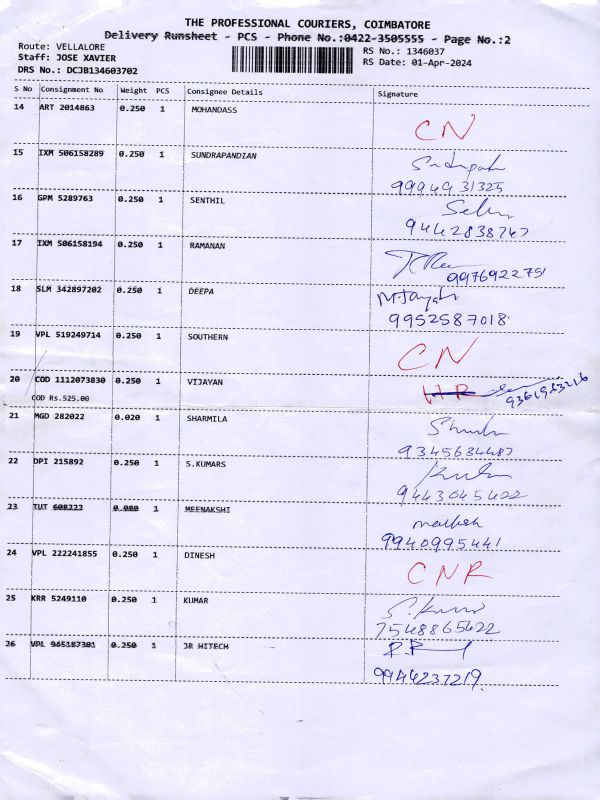 THE PROFESSIONAL COURIERS, COIMBATORE
Delivery Runsheet - PCS - Phone No.:0422-3505555 - Page No.:2
Route: VELLALORE
RS No.: 1346037
Staff: JOSE XAVIER
RS Date: 01-Apr-2024
DRS No.: DCJB134603702
S No Consignment No Weight PCS Consignee Details Signature
14 ART 2014863 0.250 1 MOHANDASS
CN
15 IXM 506158289 0.250 1 SUNDRAPANDIAN
9994931325
16 GPM 5289763 0.250 1 SENTHIL
9442838747
17 IXM 506158194 0.250 1 RAMANAN
9976922751
18 SLM 342897202 0.250 1 DEEPA
M.Jayanthi
9952587018
19 VPL 519249714 0.250 1 SOUTHERN
CN
20 COD 1112073830 0.250 1 VIJAYAN
COD Rs.525.00
21 MGD 282022 0.020 1 SHARMILA
9345634487
22 DPI 215892 0.250 1 S.KUMARS
9443045422
23 TUT 608222 0.080 1 MEENAKSHI
9940995441
24 VPL 222241855 0.250 1 DINESH
CNR
25 KRR 5249110 0.250 1 KUMAR
S.Kumar
7548865422
26 VPL 945187301 0.250 1 JR HITECH
9944237219